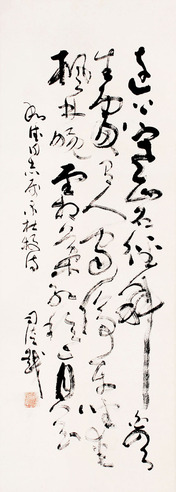 遠上寒山石徑斜白雲
生處有人家停車坐愛
楓林晚霜葉紅於二月花
同志杜牧诗
司徒越